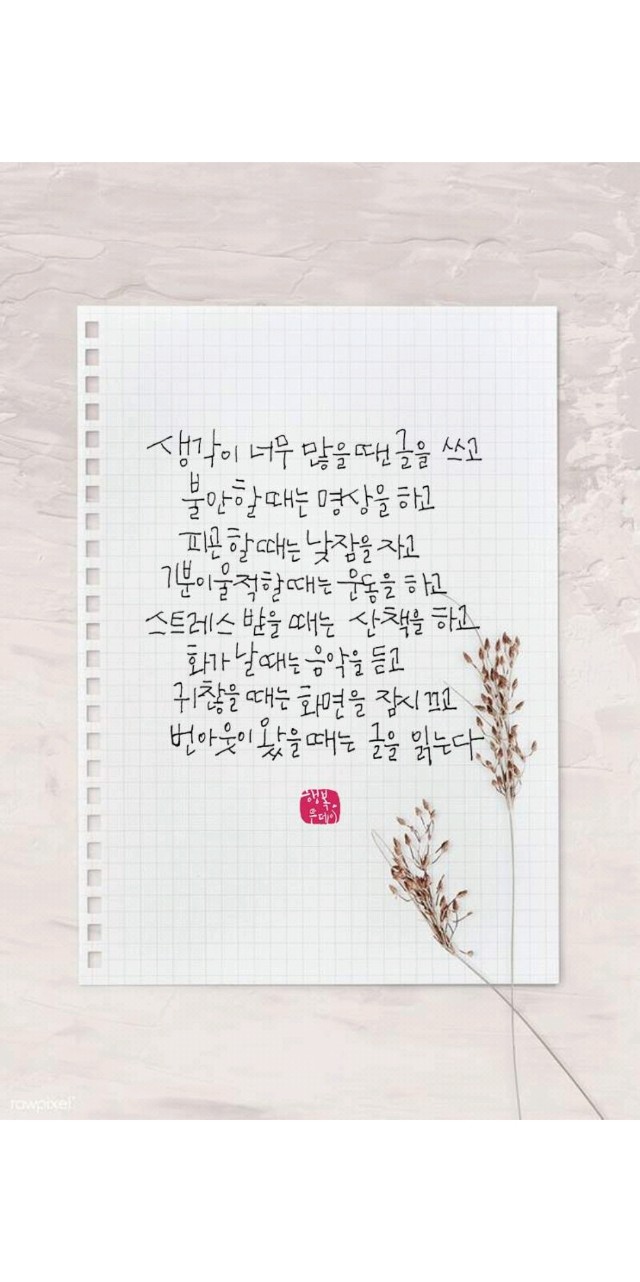 생각이 너무 많을 땐 글을 쓰고
불안할 때는 명상을 하고
피곤할 때는 낮잠을 자고
기분이 울적할 때는 운동을 하고
스트레스 받을 때는 산책을 하고
화가 날 때는 음악을 듣고
귀찮을 때는 화면을 잠시 끄고
번아웃이 왔을 때는 글을 읽는다
행복
우데이
rawpixel